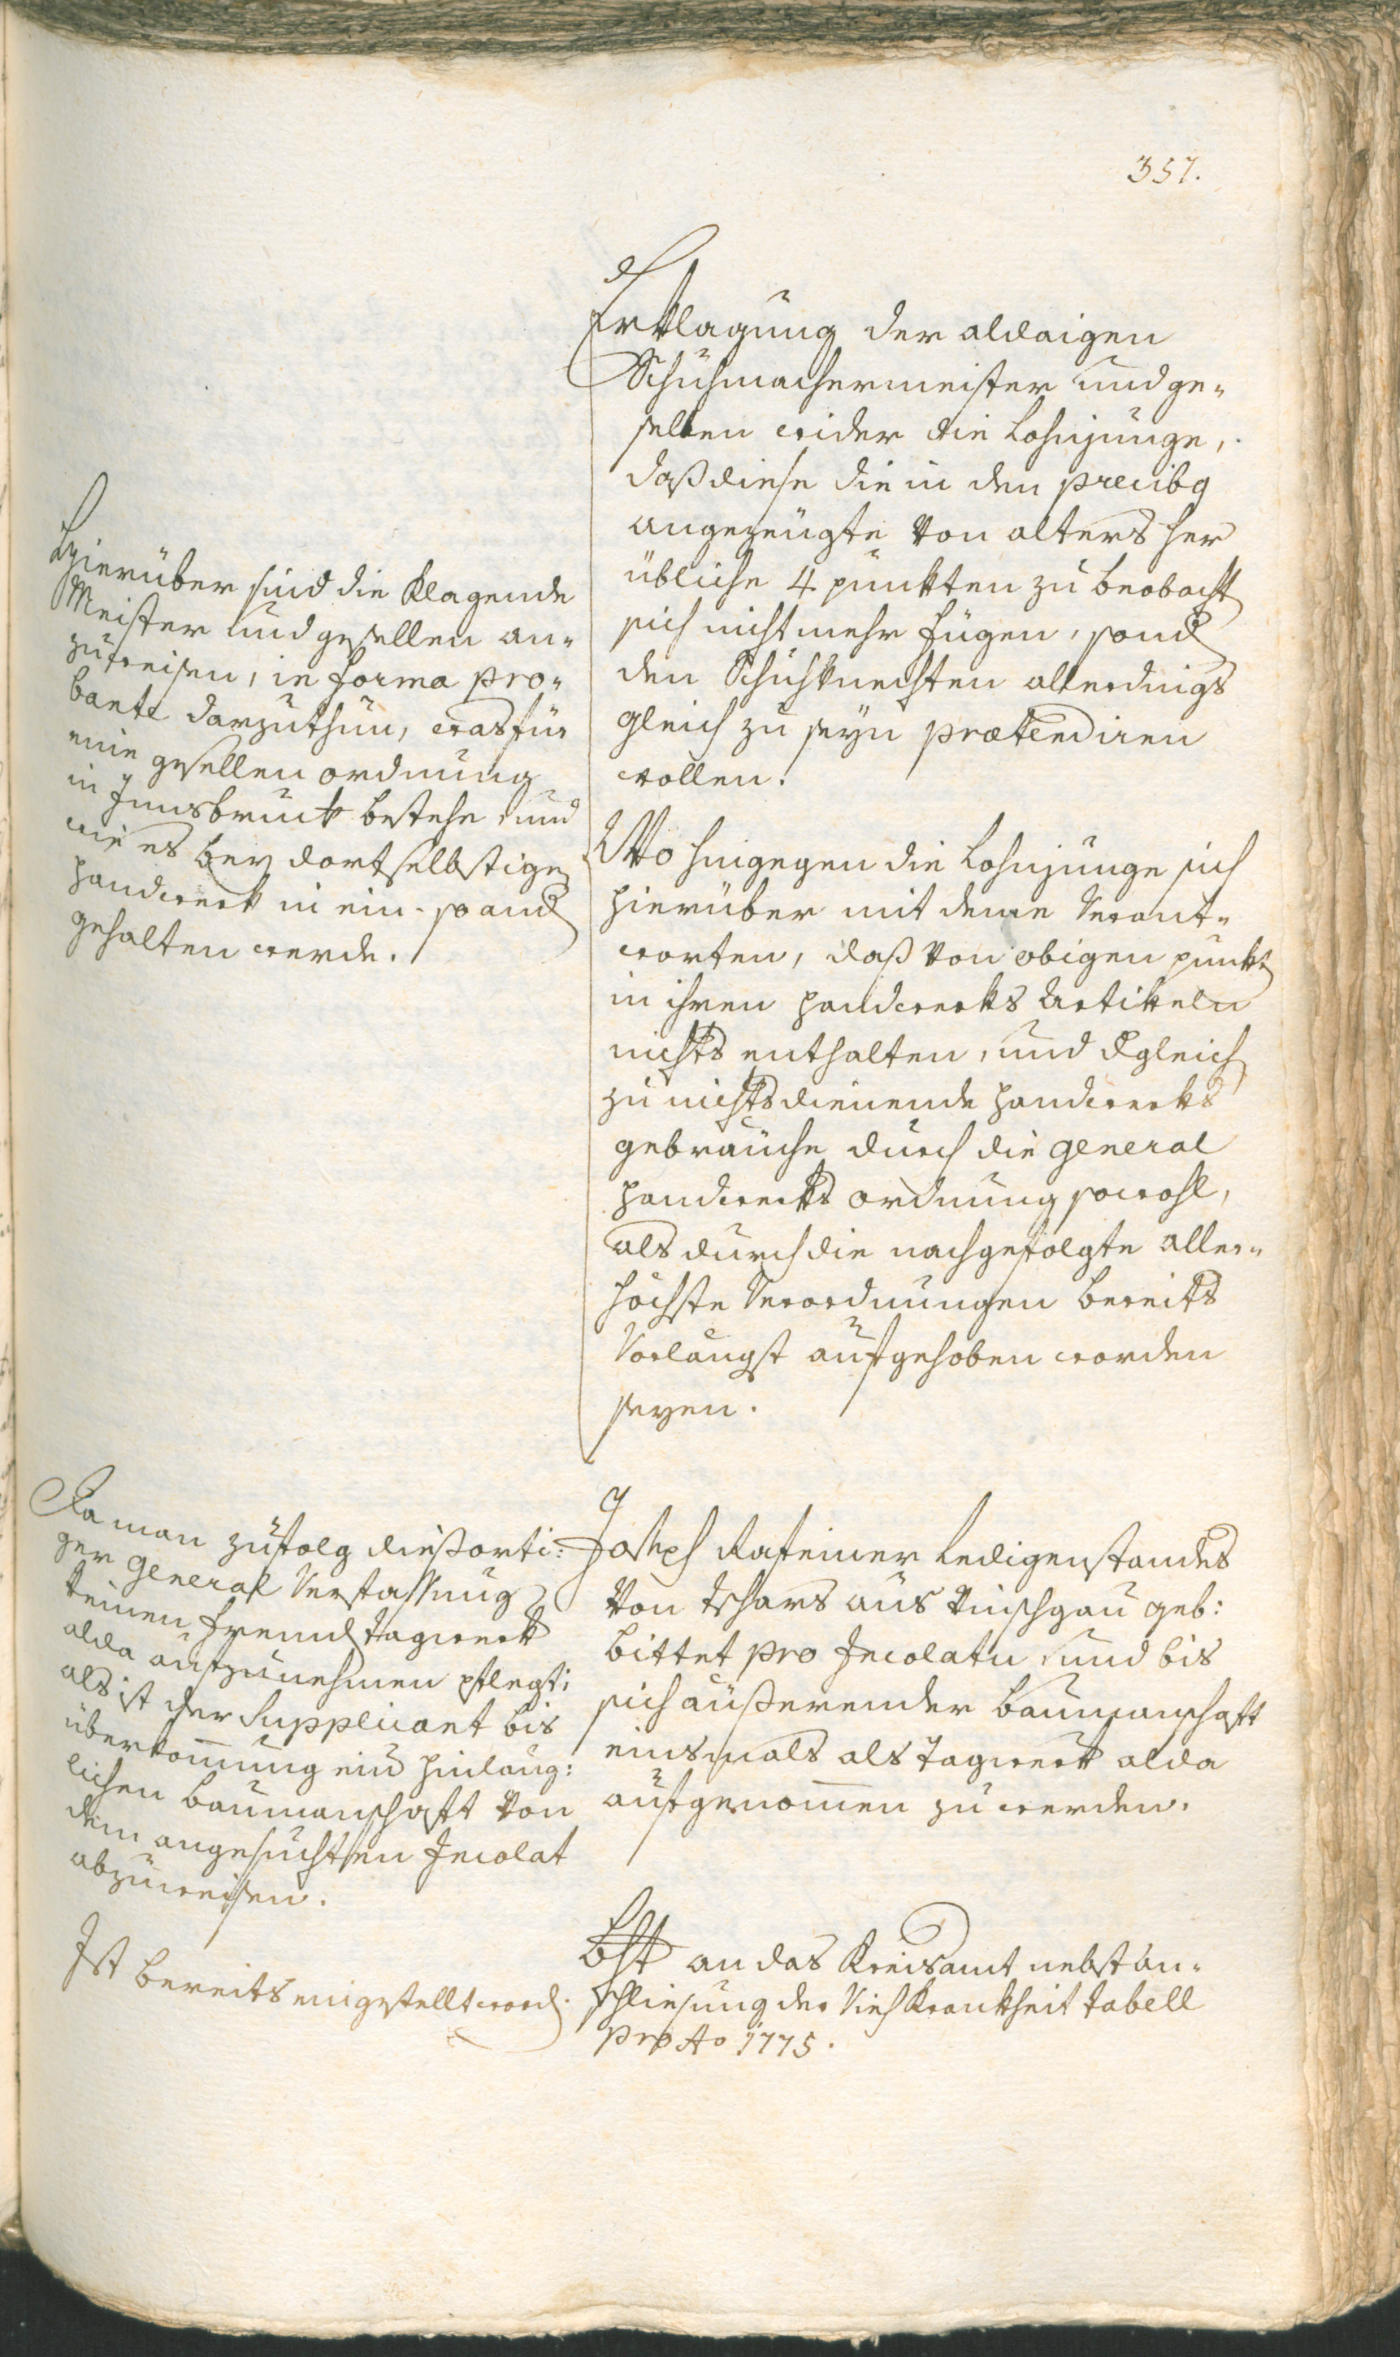 357.
Erklagung der aldaigen
Schuhmachermeister und ge-
sellen wider die Lohnjunge,
daß diese die in den precibg
angezeugte von alters her
übliche 4 punkten zu beobacht
sich nicht mehr fügen, sond
den Schuhknechten allerdings
gleich zu seyn prætendiren
wollen.
Wo hingegen die Lohnjunge sich
hierüber mit deme Verant-
worten, daß von obigen punkt
in ihren handwerks Artikeln
nichts enthalten, und dgleich
zu nichts dienende handwerks
gebräuche durch die general
handwerks ordnung sowohl,
als durch die nachgefolgte aller-
höchste Verordnungen bereits
Vorlängst aufgehoben worden
seyen.
Hierüber sind die Klagende
Meister und gesellen an-
zuweisen, in forma pro-
bante darzuthun, was für
eine gesellen ordnung
in Innsbruck bestehe und
wie es bey dortselbstige
handwerk in ein- so and
gehalten werde.
Joseph Rafeiner Ledigenstandes
von Tschars aus Vinschgau geb:
bittet pro Incolatu und bis
sich äußerender baumanschaft
einsmals als Tagwerk alda
aufgenommen zu werden.
Da man zufolg dießorti:
ger General Verfassung
keinen fremd Tagwerk
alda aufzunehmen pflegt;
als ist der Supplicant bis
überkommung eine hinläng:
lichen baumanschaft von
dem angesuchten Incolat
abzuweisen.
Bht an das Kreisamt nebst An-
schliesung der Viehkrankheit tabell
pro Ao 1775.
Ist bereits eingestellt word.